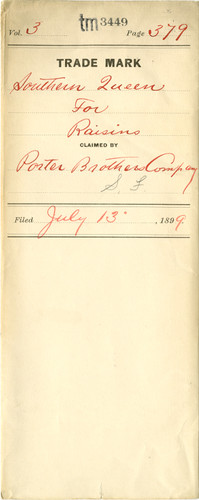 tm 3449
Vol. 3 Page 379
TRADE MARK
Southern Queen
For
Raisins
CLAIMED BY
Porter Brothers Company
S. F.
Filed July 13" , 1899.